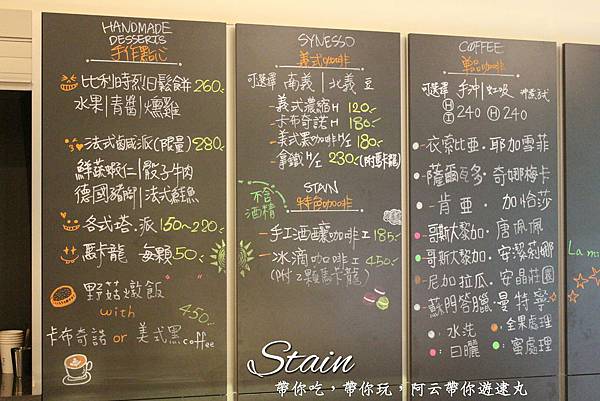 HANDMADE
DESSERTS
手作點心
比利時烈日鬆餅 260.-
水果|青醬|燻雞
法式鹹派(限量) 280.-
鮮蔬蝦仁|骰子牛肉
德國豬腳|法式鮭魚
各式塔.派 150~220.-
馬卡龍 每顆 50.-
野菇燉飯
with 450.-
卡布奇諾 or 美式黑coffee
SYNESSO
義式咖啡
可選擇 南義|北義 豆
-義式濃縮H 120.-
-卡布奇諾H 180.-
-美式黑咖啡H/I 180.-
-拿鐵H/I 230.-(附馬卡龍)
不含
酒精
STAIN
特色咖啡
-手工酒釀咖啡I 185.-
-冰滴咖啡I 450.-
(附2顆馬卡龍)
COFFEE
單品咖啡
可選擇 手沖|虹吸
H 240 H 240
I
-衣索比亞.耶加雪菲
-薩爾瓦多.奇娜梅卡
-肯亞.加恰莎
-哥斯大黎加.唐佩佩
-哥斯大黎加.安潔莉娜
-尼加拉瓜.安晶莊園
-蘇門答臘.曼特寧
:水洗
:全果處理
:日曬
:蜜處理
La mi
Stain
帶你吃，帶你玩，阿云帶你遊達丸